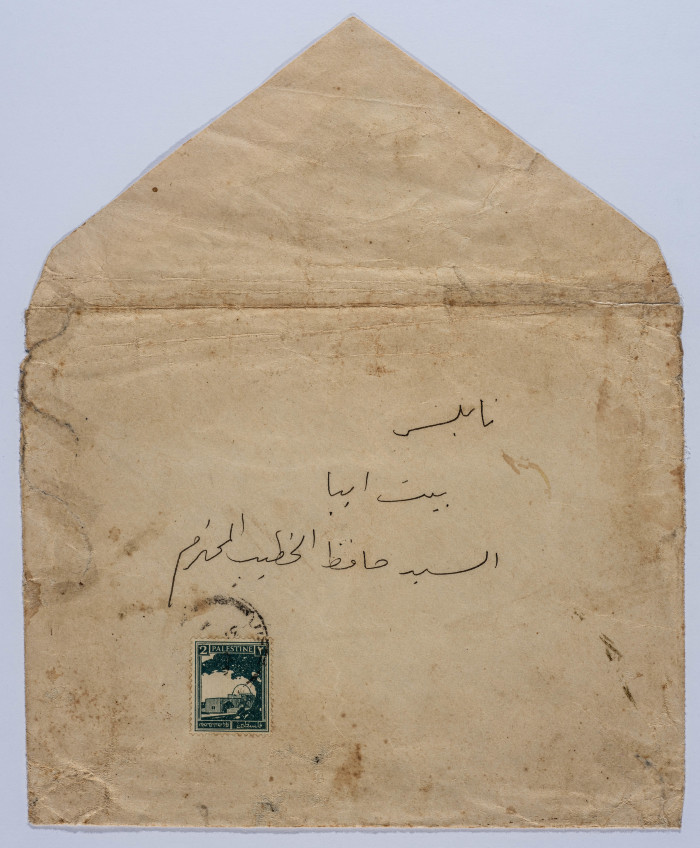 نابلس
بيت ايبا
السيد حافظ الخطيب المحترم
2 PALESTINE ٢
فلسطين